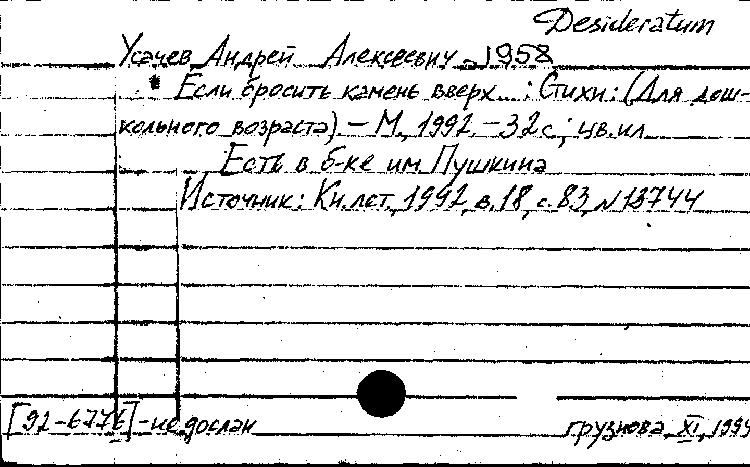 Desideratum
Усачев Андрей Алексеевич, 1958
* Если бросить камень вверх...: Стихи: (Для дош-
кольного возраста) – М., 1992. – 32 с.; цв. ил.
Есть в б-ке им. Пушкина
Источник: Кн. лет., 1992, в. 18, с. 83, №13744
[92-6776] - не дослан
грузнова, XI, 1994